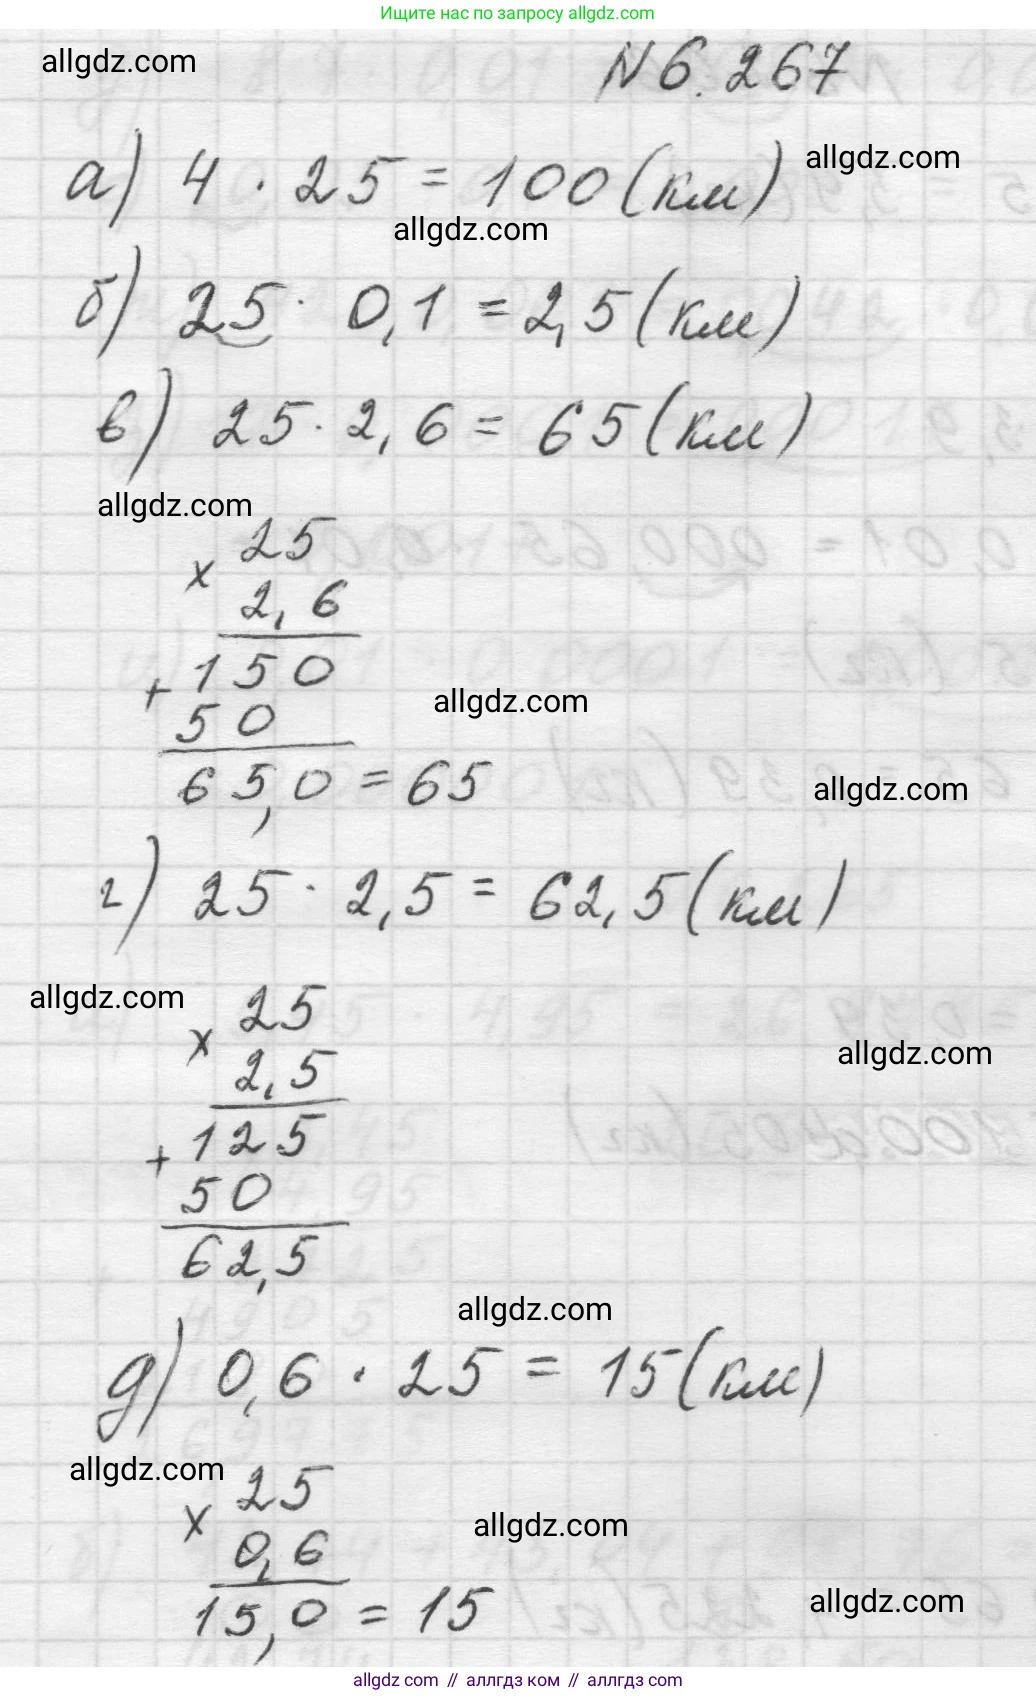 Ищите нас по запросу allgdz.com
allgdz.com
N 6.267
а) 4 · 25 = 100 (км)
allgdz.com
allgdz.com
б) 25 · 0,1 = 2,5 (км)
в) 25 · 2,6 = 65 (км)
allgdz.com
25
×
2,6
150
+
allgdz.com
50
65,0 = 65
allgdz.com
г) 25 · 2,5 = 62,5 (км)
allgdz.com
25
×
allgdz.com
2,5
125
+
50
62,5
allgdz.com
д) 0,6 · 25 = 15 (км)
allgdz.com
25
×
allgdz.com
0,6
15,0 = 15
allgdz.com
allgdz.com // аллгдз ком // аллгдз.com